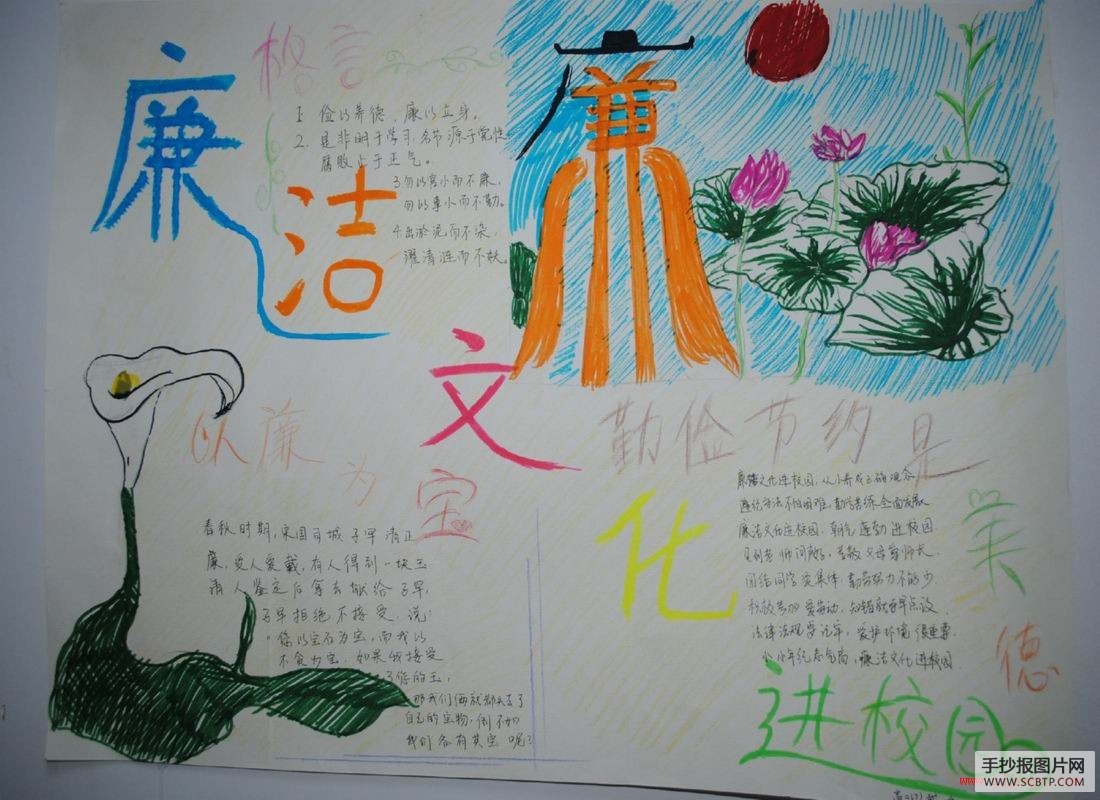 廉
洁
文
化
进校园
格言
1. 俭以养德、廉以立身。
2. 是非明于学习,名节源于党性
腐败止于正气。
3.勿以官小而不廉,
勿以事小而不勤。
4.出淤泥而不染,
濯清涟而不妖。
廉
以廉
为
宝
春秋时期,宋国司城子罕清正
廉,受人爱戴,有人得到一块玉
请人鉴定后拿去献给子罕,
子罕拒绝不接受,说:
"您以宝石为宝,而我以
不贪为宝。如果我接受
了您的玉,
那我们俩就都失去了
自己的宝物,倒不如
我们各有其宝呢?
勤俭节约是
美
德
廉洁文化进校园,从小养成正确观念
遵纪守法不怕困难,勤学苦练全面发展
廉洁文化进校园,朝气蓬勃进校园
见到老师问声好,孝敬父母尊师长。
团结同学爱集体,勤劳努力不能少
积极参加爱劳动,知错就改早点改
法律法规学记牢,爱护环境很重要
廉洁文化进校园
手抄报图片网
WWW.SCBTP.COM